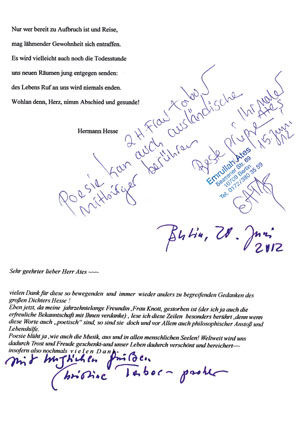 Nur wer bereit zu Aufbruch ist und Reise,
mag lähmender Gewohnheit sich entraffen.
Es wird vielleicht auch noch die Todesstunde
uns neuen Räumen jung entgegen senden:
des Lebens Ruf an uns wird niemals enden.
Wohlan denn, Herz, nimm Abschied und gesunde!
Hermann Hesse
2H Frau Tabor
Poesie kan auch ausländische
Mitbürger berühren
Ihr Maler
Ates
Beste Grüße
15. Juni
Emrullah Ates
10709 Berlin
Berlin, 20. Juni
2012
Sehr geehrter lieber Herr Ates -----
vielen Dank für diese so bewegenden und immer wieder anders zu begreifenden Gedanken des
großen Dichters Hesse !
Eben jetzt, da meine jahrzehntelange Freundin ,Frau Knott, gestorben ist (der ich ja auch die
erfreuliche Bekanntschaft mit Ihnen verdanke) , lese ich diese Zeilen besonders berührt ,denn wenn
diese Worte auch „poetisch" sind, so sind sie doch und vor Allem auch philosophischer Anstoß und
Lebenshilfe.
Poesie bläht ja ,wie auch die Musik, aus und in allen menschlichen Seelen! Weltweit wird uns
dadurch Trost und Freude geschenkt-und unser Leben dadurch verschönt und bereichert---
insofern also nochmals vielen Dank:
mit herzlichen Grüßen
Christine Tabor-